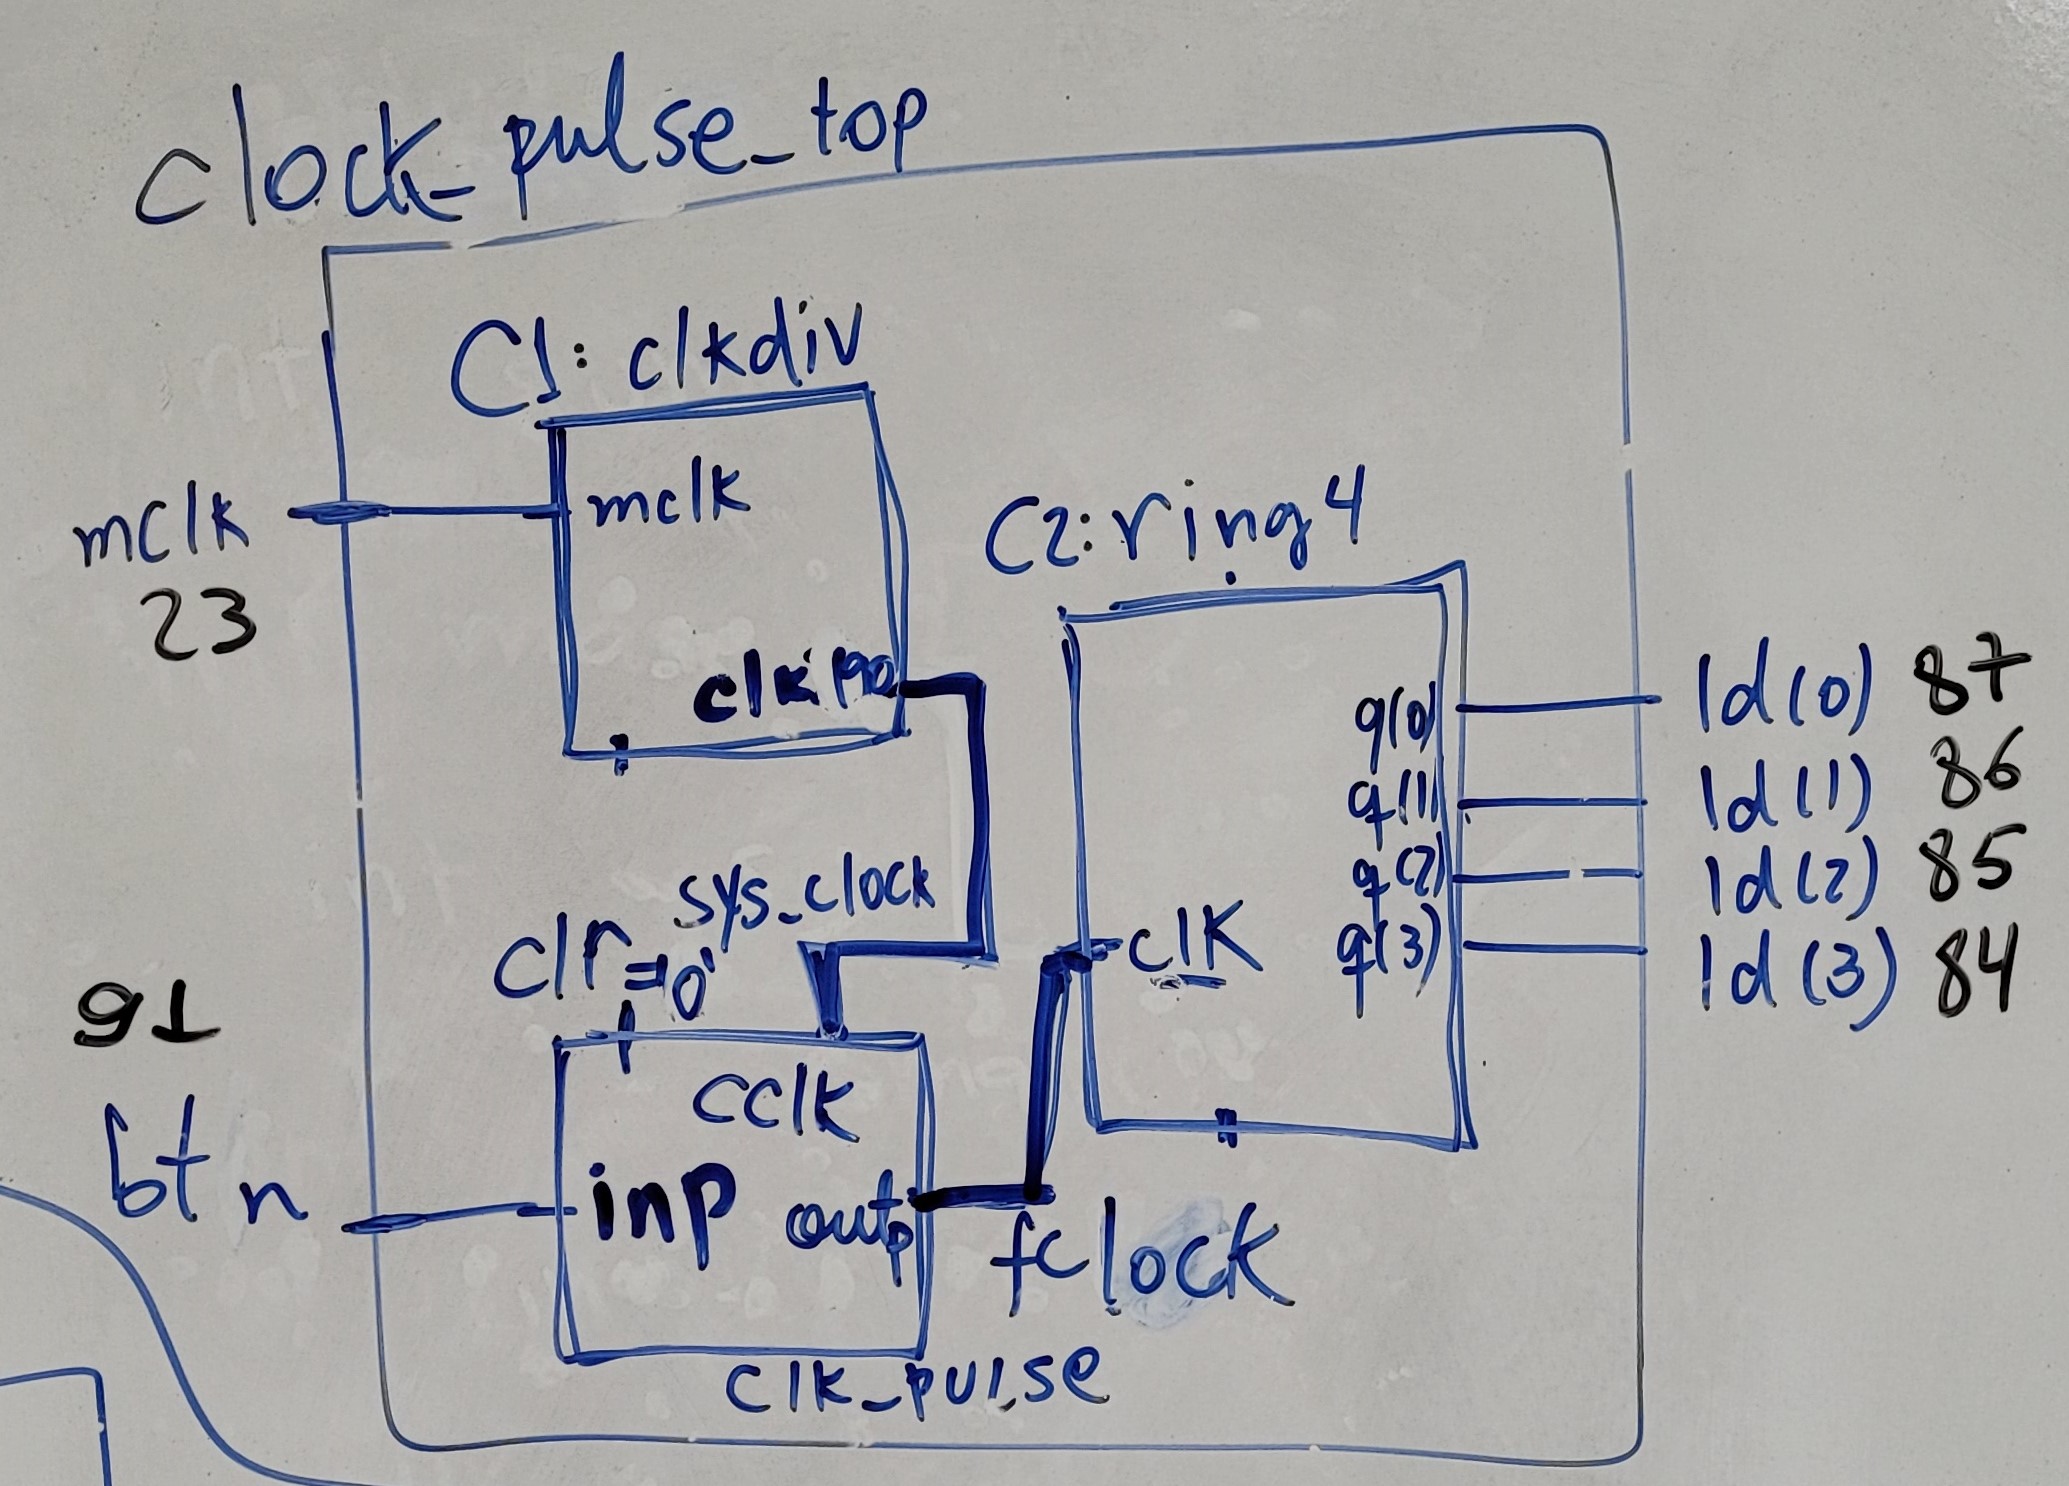 clock_pulse_top
C1: clkdiv
mclk
23
mclk
clk190
C2: ring4
q(0)
q(1)
q(2)
q(3)
clk
ld(0) 87
ld(1) 86
ld(2) 85
ld(3) 84
sys_clock
clr='0'
btn
cclk
inp outp
fclock
clk_pulse